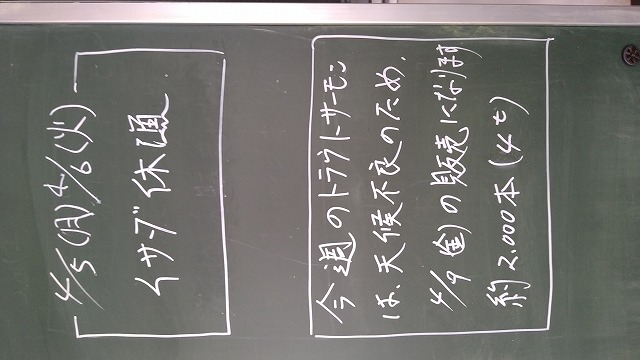 4/5(月) 4/6(火)
イサダ休漁
今週のトラウトサーモン
は、天候不良のため、
4/9(金)の販売になります
約2.000本(4t)